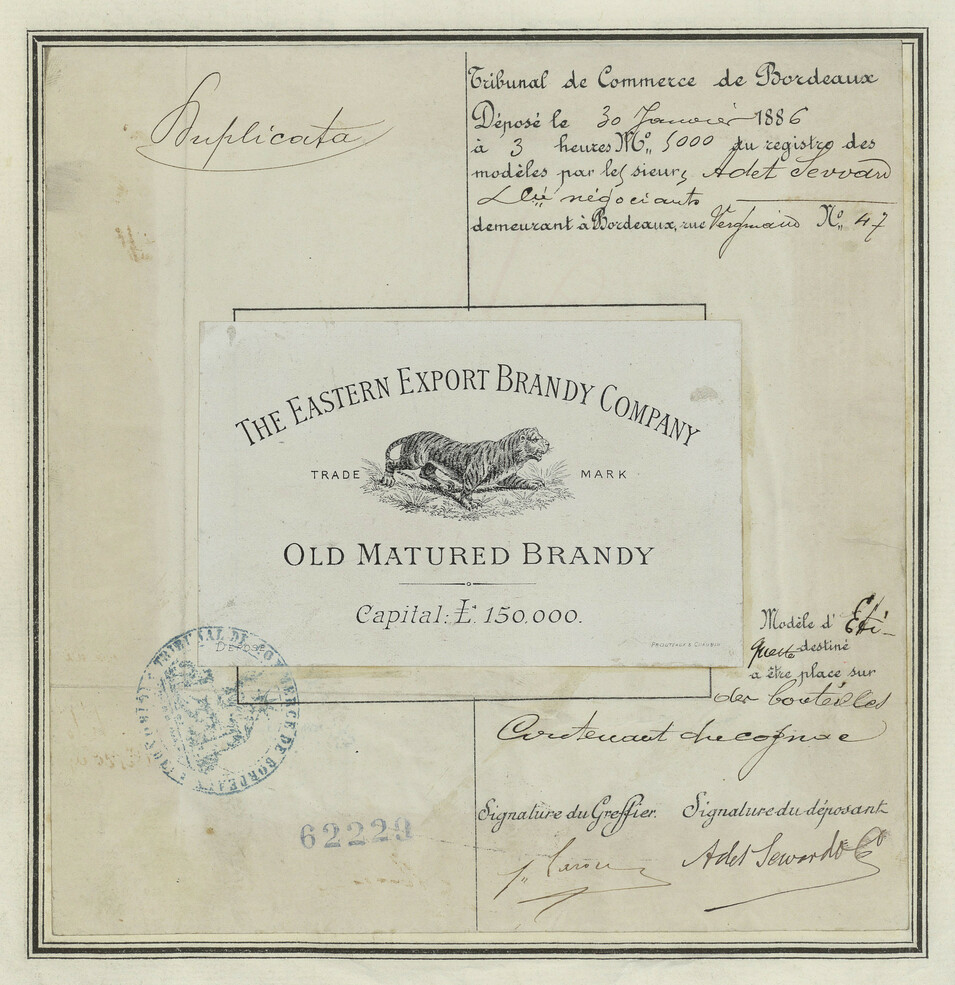 Duplicata
Tribunal de Commerce de Bordeaux
Déposé le 30 Janvier 1886
à 3 heures Nº. 5000 du registre des
modèles par les sieurs Adet Seward
& Cie négociants
demeurant à Bordeaux, rue Vergniaud Nº. 47
THE EASTERN EXPORT BRANDY COMPANY
TRADE MARK
OLD MATURED BRANDY
Capital: £ 150,000.
DÉPOSÉ
Modèle d' Eti-
quette destiné
a être placé sur
des bouteilles
Contenant du cognac
TRIBUNAL DE COMMERCE DE BORDEAUX
62229
Signature du Greffier. Signature du déposant
Adet Seward & Co